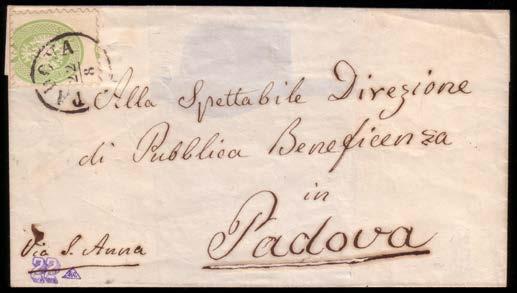 PADOVA
22
8
Alla Spettabile Direzione
di Pubblica Beneficenza
in
Padova
Via S. Anna